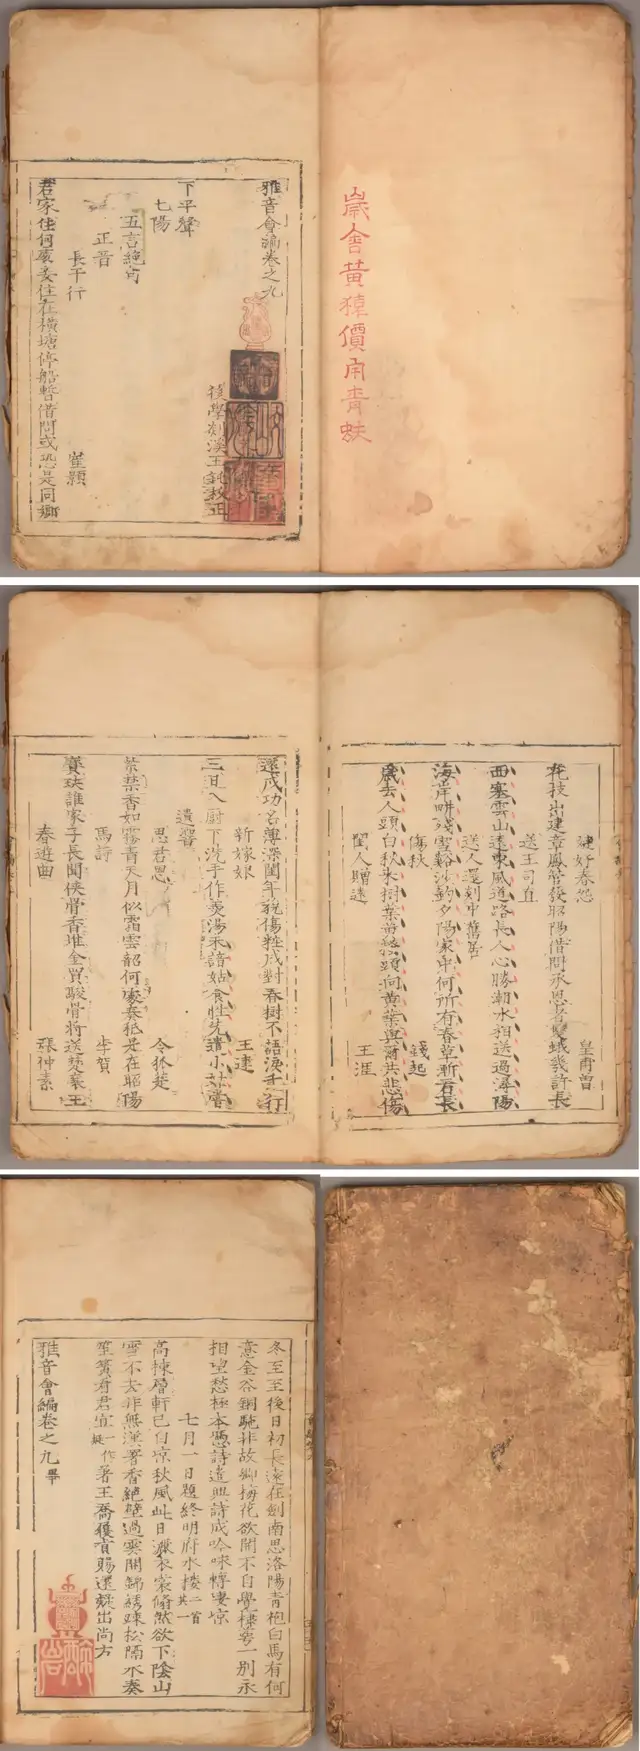 歳舍黄猿價甬青蚨
雅音會編卷之九
後學剡溪王鈍校正
下平聲
七陽
五言絶句
正音
長干行 崔顥
君家住何處妾住在橫塘停船暫借問或恐是同鄉
婕妤春怨 皇甫曾
花枝出建章鳳管發昭陽借問承恩者雙蛾幾許長
送王司直
西塞雲山遠東風道路長人心勝潮水相送過潯陽
送人還剡中舊居
海岸畊殘雪谿沙釣夕陽家中何所有春草漸看長
傷秋 錢起
歲去人頭白秋來樹葉黃搔頭向黃葉與爾共悲傷
閨人贈遠 王涯
遠戍功名薄深閨年貌傷粧成對春樹不語淚千行
新嫁娘 王建
三日入厨下洗手作羹湯未諳姑食性先遣小姑嘗
遺響
思君恩 令狐楚
紫禁香如霧青天月似霜雲韶何處奏秖是在昭陽
馬詩 李賀
寶玦誰家子長聞俠骨香堆金買駿骨將送楚襄王
春遊曲 張仲素
冬至至後日初長遠在劍南思洛陽青袍白馬有何
意金谷銅駝非故鄉梅花欲開不自覺棣萼一別永
相望愁極本憑詩遣興詩成吟咏轉凄凉
七月一日題終明府水樓二首其一
高棟層軒已自凉秋風此日灑衣裳翛然欲下陰山
雪不去非無漢署香絶壁過雲開錦綉疎松隔水奏
笙簧看君宜一作疑著王喬履眞賜還疑出尚方
雅音會編卷之九畢